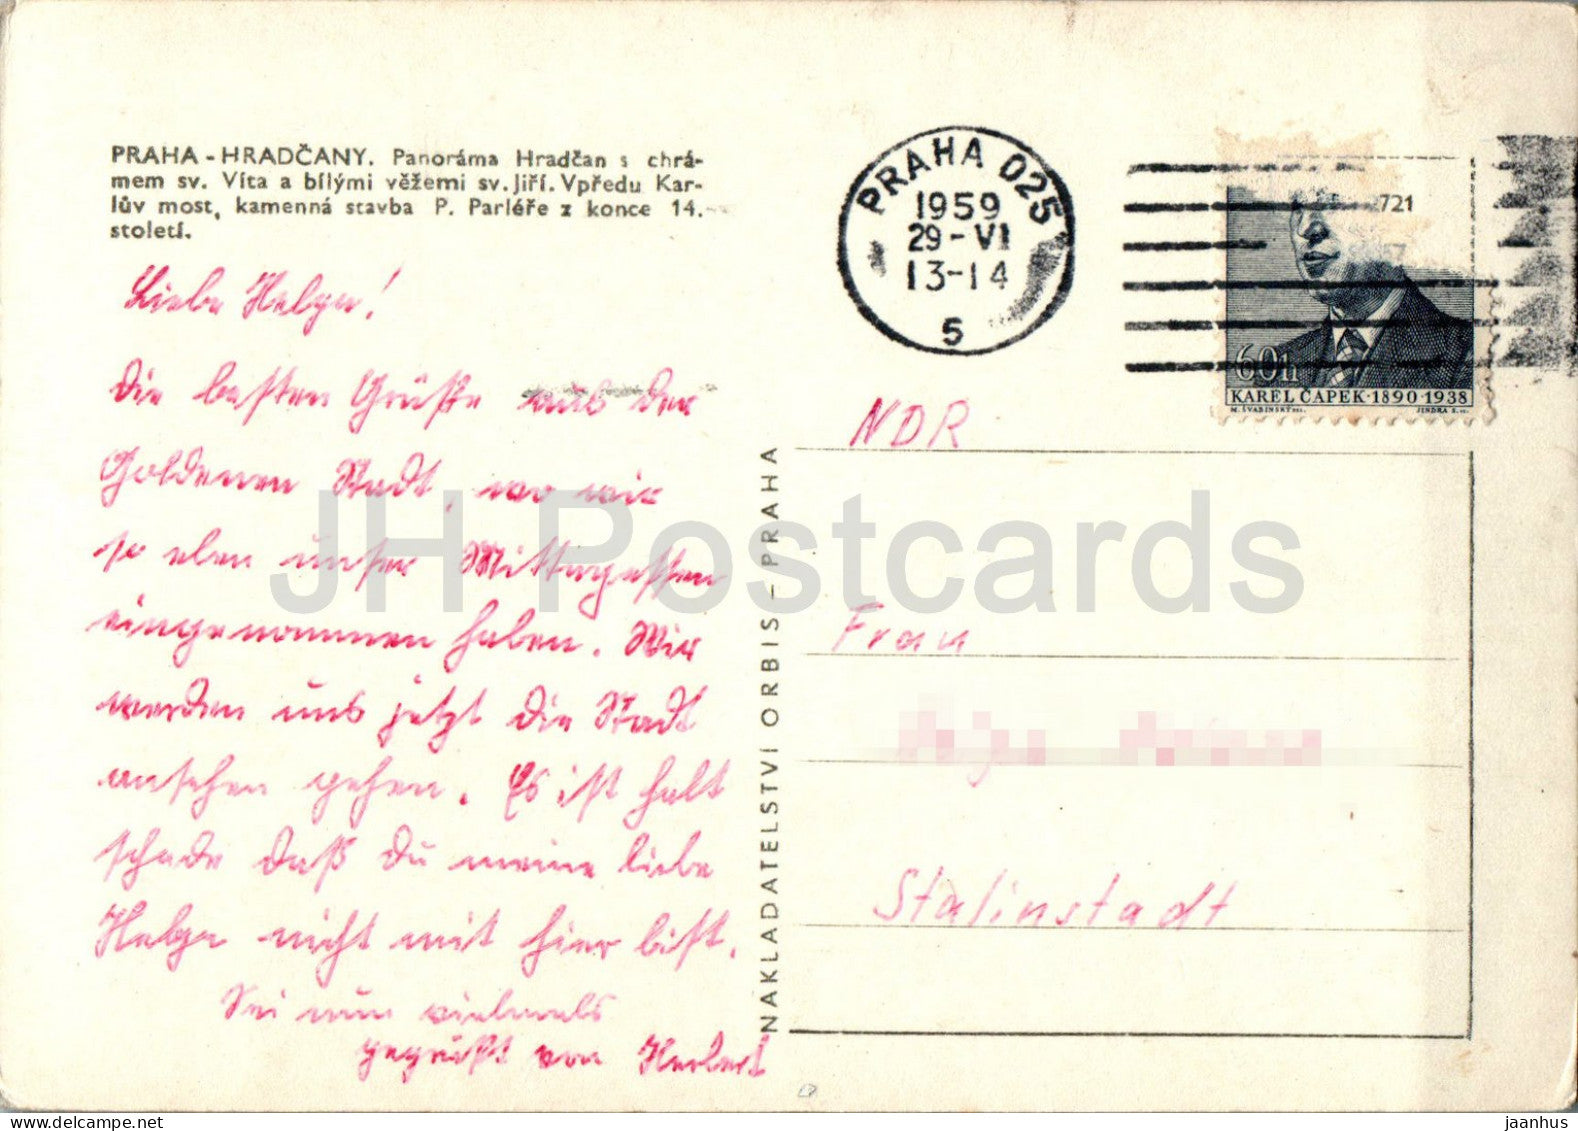 PRAHA - HRADČANY. Panoráma Hradčan s chrá-
mem sv. Víta a bílými věžemi sv. Jiří. Vpředu Kar-
lův most, kamenná stavba P. Parléře z konce 14.
století.
Liebe Helga!
Die besten Grüße aus der
Goldenen Stadt, wo wir
so eben unser Mittagessen
eingenommen haben. Wir
werden uns jetzt die Stadt
ansehen gehen. Es ist halt
schade daß du meine liebe
Helga nicht mit hier bist.
Sei nun vielmals
gegrüßt von Herbert
NAKLADATELSTVÍ ORBIS - PRAHA
PRAHA 025
1959
29-VI
13-14
5
721
60h
KAREL ČAPEK·1890·1938
M. ŠVABINSKÝ DEL. JINDRA S. SC.
NDR
Frau
Stalinstadt
JH Postcards
jaanhus